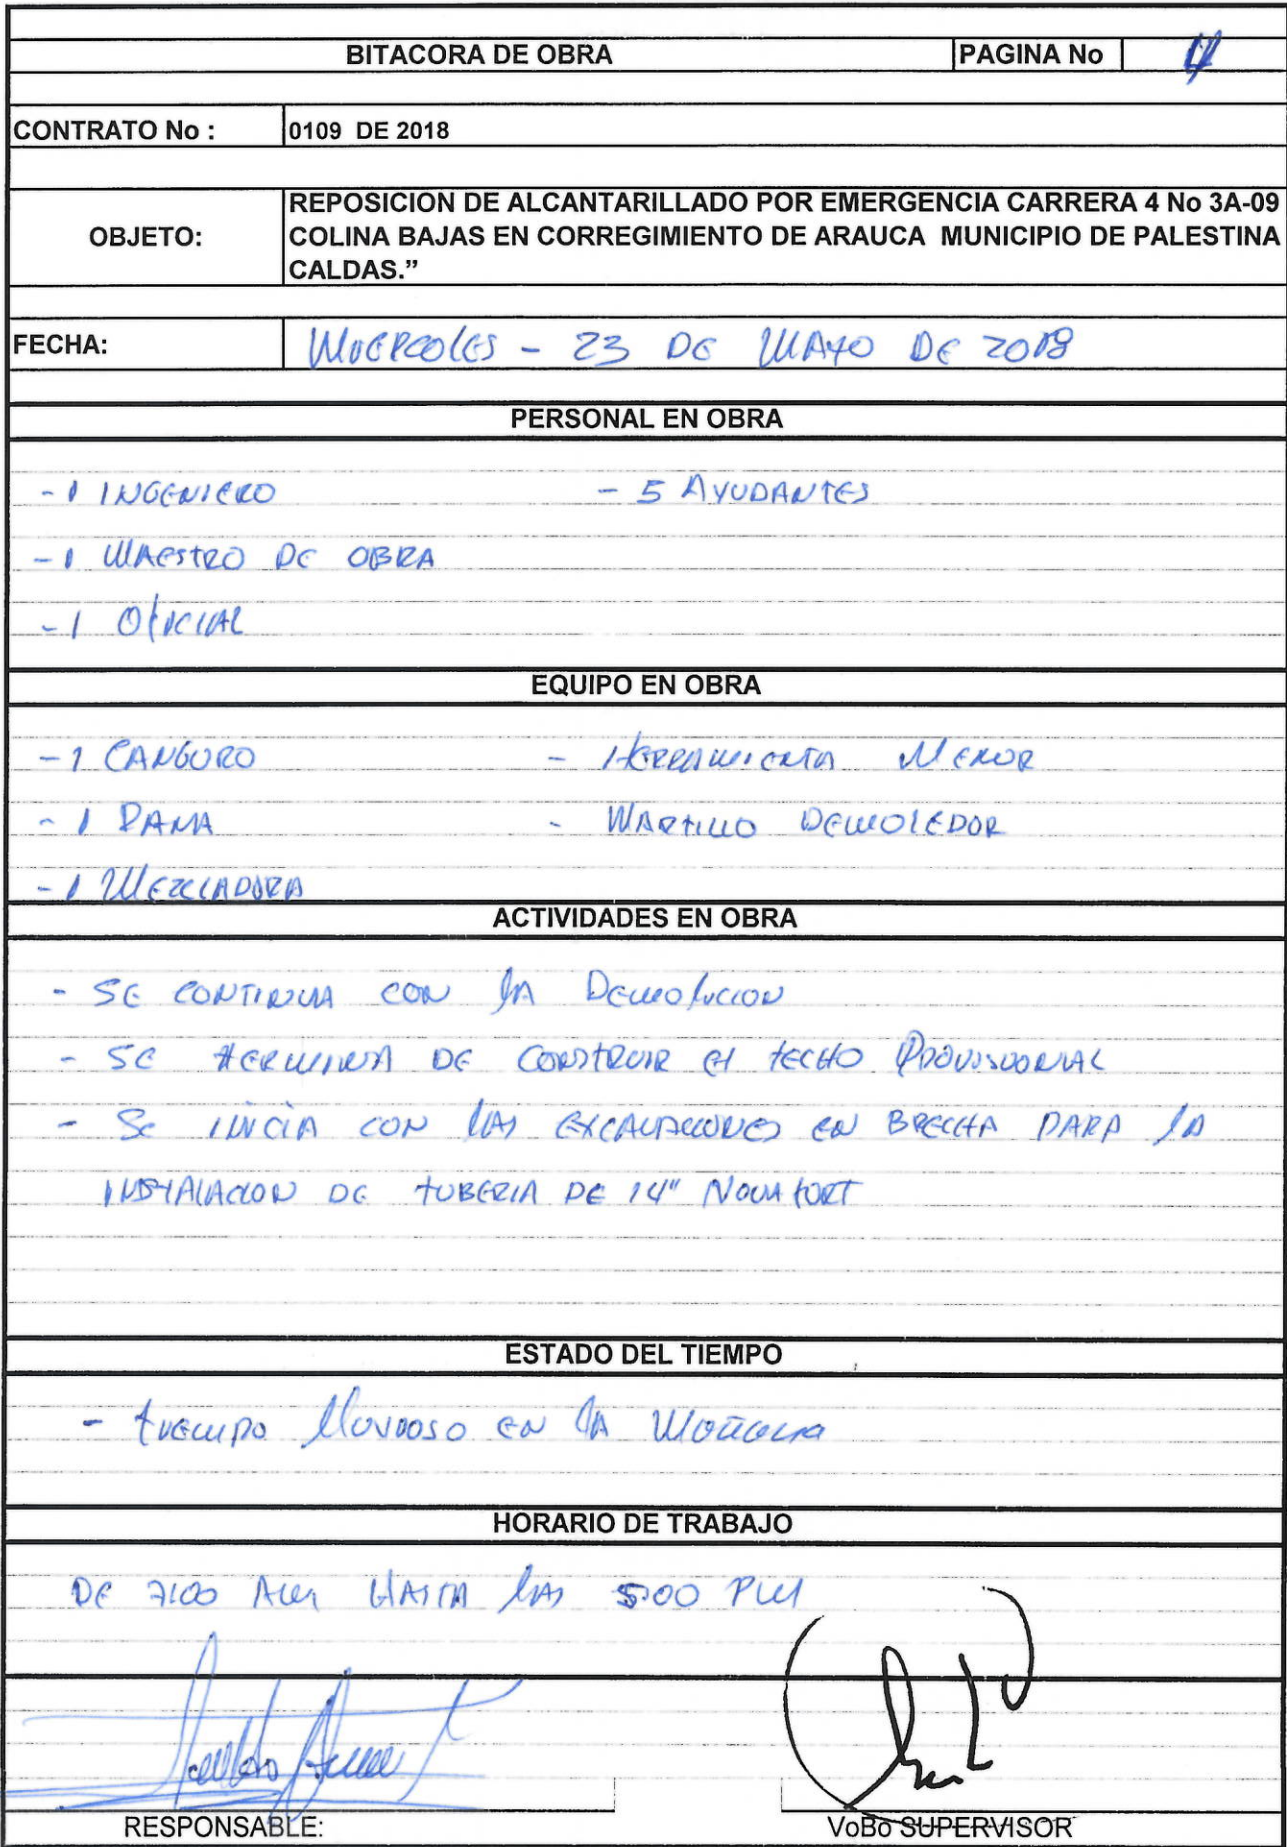 BITACORA DE OBRA PAGINA No 4
CONTRATO No : 0109 DE 2018
OBJETO: REPOSICION DE ALCANTARILLADO POR EMERGENCIA CARRERA 4 No 3A-09
COLINA BAJAS EN CORREGIMIENTO DE ARAUCA MUNICIPIO DE PALESTINA
CALDAS.”
FECHA: MIERCOLES - 23 DE MAYO DE 2018
PERSONAL EN OBRA
- 1 INGENIERO - 5 AYUDANTES
- 1 MAESTRO DE OBRA
- 1 OFICIAL
EQUIPO EN OBRA
- 1 CANGURO - HERRAMIENTA MENOR
- 1 RANA - MARTILLO DEMOLEDOR
- 1 MEZCLADORA
ACTIVIDADES EN OBRA
- SE CONTINUA CON LA DEMOLICION
- SE TERMINA DE CONSTRUIR EL TECHO PROVISIONAL
- SE INICIA CON LAS EXCAVACIONES EN BRECHA PARA LA
INSTALACION DE TUBERIA DE 14" NOVAFORT
ESTADO DEL TIEMPO
- TIEMPO LLUVIOSO EN LA MAÑANA
HORARIO DE TRABAJO
DE 7:00 AM HASTA LAS 5:00 PM
RESPONSABLE: VoBo SUPERVISOR